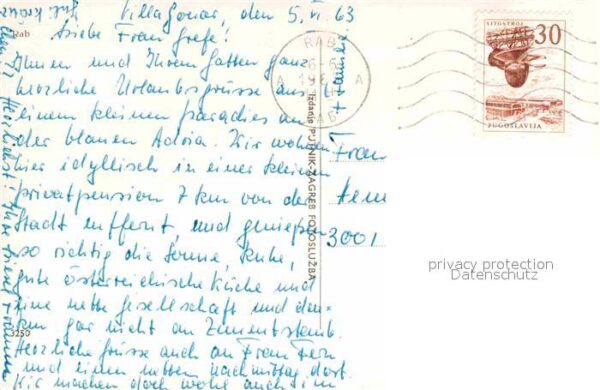 Villa Gonar, den 5. VI. 63
Rab
Liebe Frau Grefe!
Ihnen und Ihrem Gatten ganz
herzliche Urlaubsgrüsse aus
einem kleinen Paradies an
der blauen Adria. Wir wohnen
hier idyllisch in einer kleinen
Privatpension 7 km von der
Stadt entfernt und geniessen
so richtig die Sonne, Ruhe,
gute österreichische Küche und
eine nette Gesellschaft und den-
ken gar nicht an Zementstaub.
Herzliche Grüsse auch an Frau Fern
und einen netten Nachmittag dort.
Wir machen doch wohl auch im
3250
Izdanje PUTNIK-ZAGREB FOTOSLUŽBA
RAB
A
A
LITOSTROJ
30
JUGOSLAVIJA
Frau
3001
privacy protection
Datenschutz